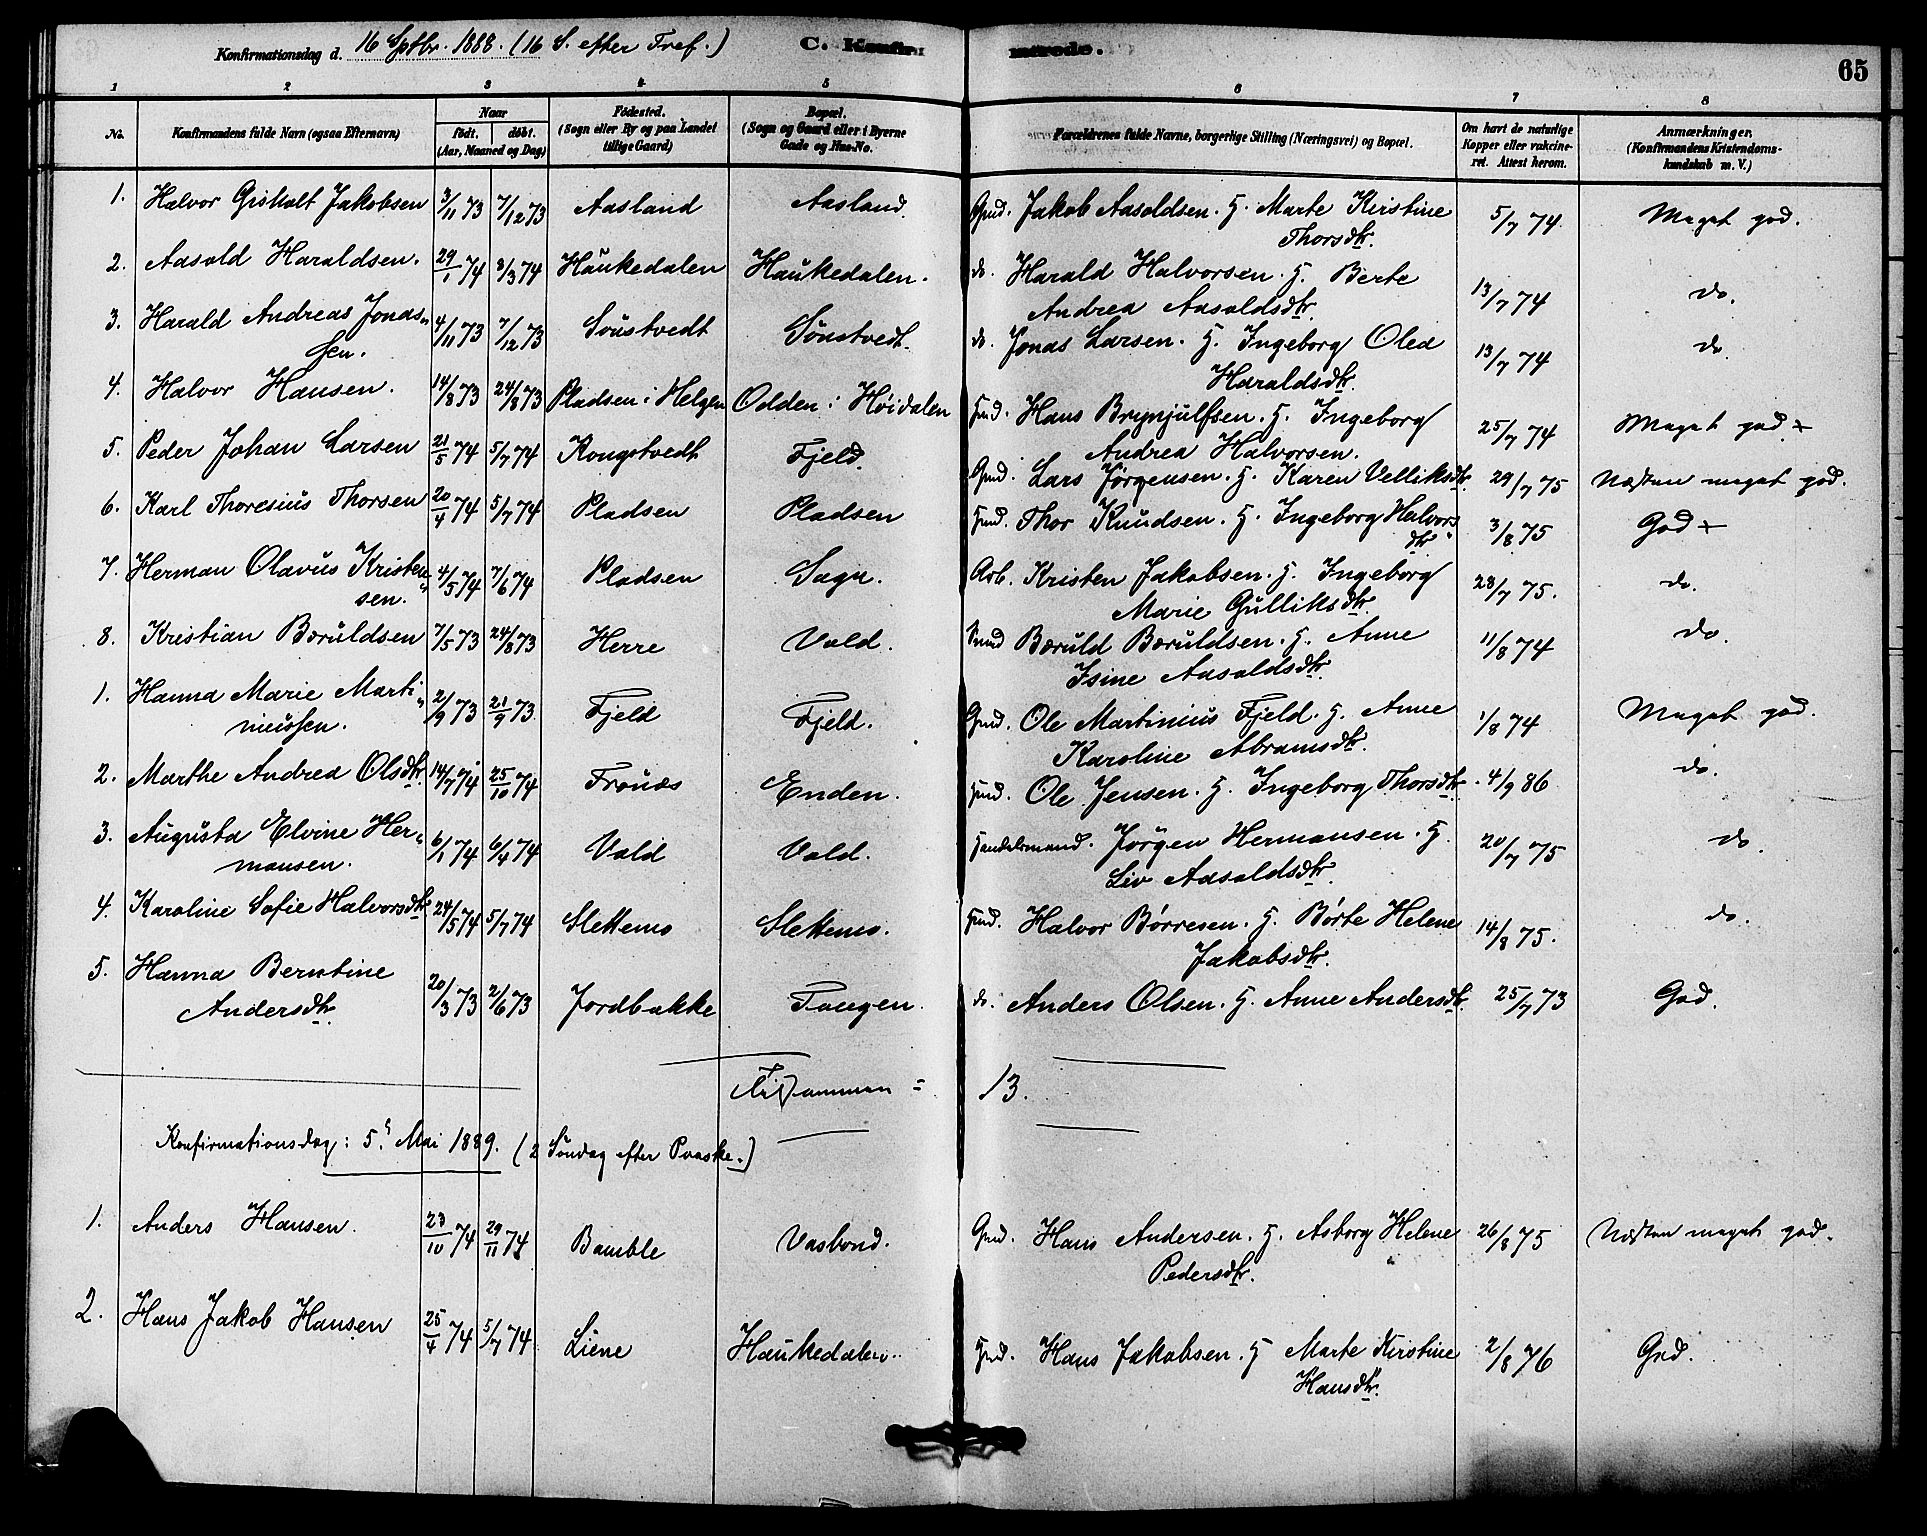 Konfirmationsdag d. 16 Sptbr. 1888. (16 S. efter Tref.) C. Konfirmerede. 65
1 2 3 4 5 6 7 8
No. Konfirmandens fulde Navn (ogsaa Efternavn) Naar født. døbt. (Aar, Maaned og Dag) Fødested. (Sogn eller By og paa Landet tillige Gaard) Bopæl. (Sogn og Gaard eller i Byerne Gade og Hus-No. Forældrenes fulde Navne, borgerlige Stilling (Næringsvei) og Bopæl. Om havt de naturlige Kopper eller vakcineret. Attest herom. Anmærkninger. (Konfirmandens Kristendomskundskab m. V.)
1. Halvor Gisholt Jakobsen 3/11 73 7/12 73 Aasland Aasland. Gmd. Jakob Aasoldsen. H. Marte Kirstine 5/7 74 Meget god.
Thorsdtr.
2. Aasold Haraldsen. 29/1 74 8/3 74 Haukedalen Haukedalen. do. Harald Halvorsen. H. Berte 13/7 74 do.
Andrea Aasoldsdtr.
3. Harald Andreas Jonas- 4/11 73 7/12 73 Sönstvedt Sönstvedt. do. Jonas Larsen. H. Ingeborg Olea 13/7 74 do.
sen. Haraldsdtr.
4. Halvor Hansen. 14/8 73 24/8 73 Pladsen i Helgen Odden i Høidalen Hmd. Hans Brynjulfsen. H. Ingeborg 25/7 74 Meget god.
Andrea Halvorsen.
5. Peder Johan Larsen 21/5 74 5/7 74 Rongstvedt Fjeld. Gmd. Lars Jörgensen. H. Karen Velliksdtr. 29/7 75 Næsten meget god.
6. Karl Thoresius Thorsen 20/4 74 5/7 74 Pladsen Pladsen Hmd. Thor Knudsen. H. Ingeborg Halvors 3/8 75 God
dtr.
7. Herman Olavus Kristen- 4/5 74 7/6 74 Pladsen Sagn. Arb. Kristen Jakobsen. H. Ingeborg 28/7 75. do.
sen. Marie Gulliksdtr.
8. Kristian Bæruldsen 7/5 73 24/8 73 Herre Vold. Smd Bæruld Bæruldsen. H. Anne 11/8 74 do.
Isine Aasoldsdtr.
1. Hanna Marie Marti- 2/9 73 21/9 73. Fjeld Fjeld. Gmd. Ole Martinius Fjeld. H. Anne 1/8 74 Meget god.
niussen. Karoline Abramsdtr.
2. Marthe Andrea Olsdtr. 14/7 74 25/10 74 Frönæs Enden. Hmd. Ole Jensen. H. Ingeborg Thorsdtr. 4/9 86 do.
3. Augusta Elvine Her- 6/1 74 6/4 74 Vold Vold. Handelsmand. Jörgen Hermansen. H. 20/7 75 do.
mansen. Liv Aasoldsdtr.
4. Karoline Sofie Halvorsdtr. 24/5 74 5/7 74 Slettemo Slettemo. Hmd. Halvor Börresen. H. Börte Helene 14/8 75. do.
Jakobsdtr.
5. Hanna Berntine 20/3 73 2/6 73 Jordbakke Tangen. do. Anders Olsen. H. Anne Andersdtr. 25/7 73 God.
Andersdtr.
Tilsammen = 13.
Konfirmationsdag: 5. Mai 1889. (2 Söndag efter Paaske.)
1. Anders Hansen. 23/10 74 29/11 74 Bamble Vasbond. Gmd. Hans Andersen. H. Asborg Helene 26/8 75 Næsten meget god.
Pedersdtr.
2. Hans Jakob Hansen 25/4 74 5/7 74 Liene Haukedalen. Gmd. Hans Jakobsen. H Marte Kirstine 2/8 76 God.
Hansdtr.